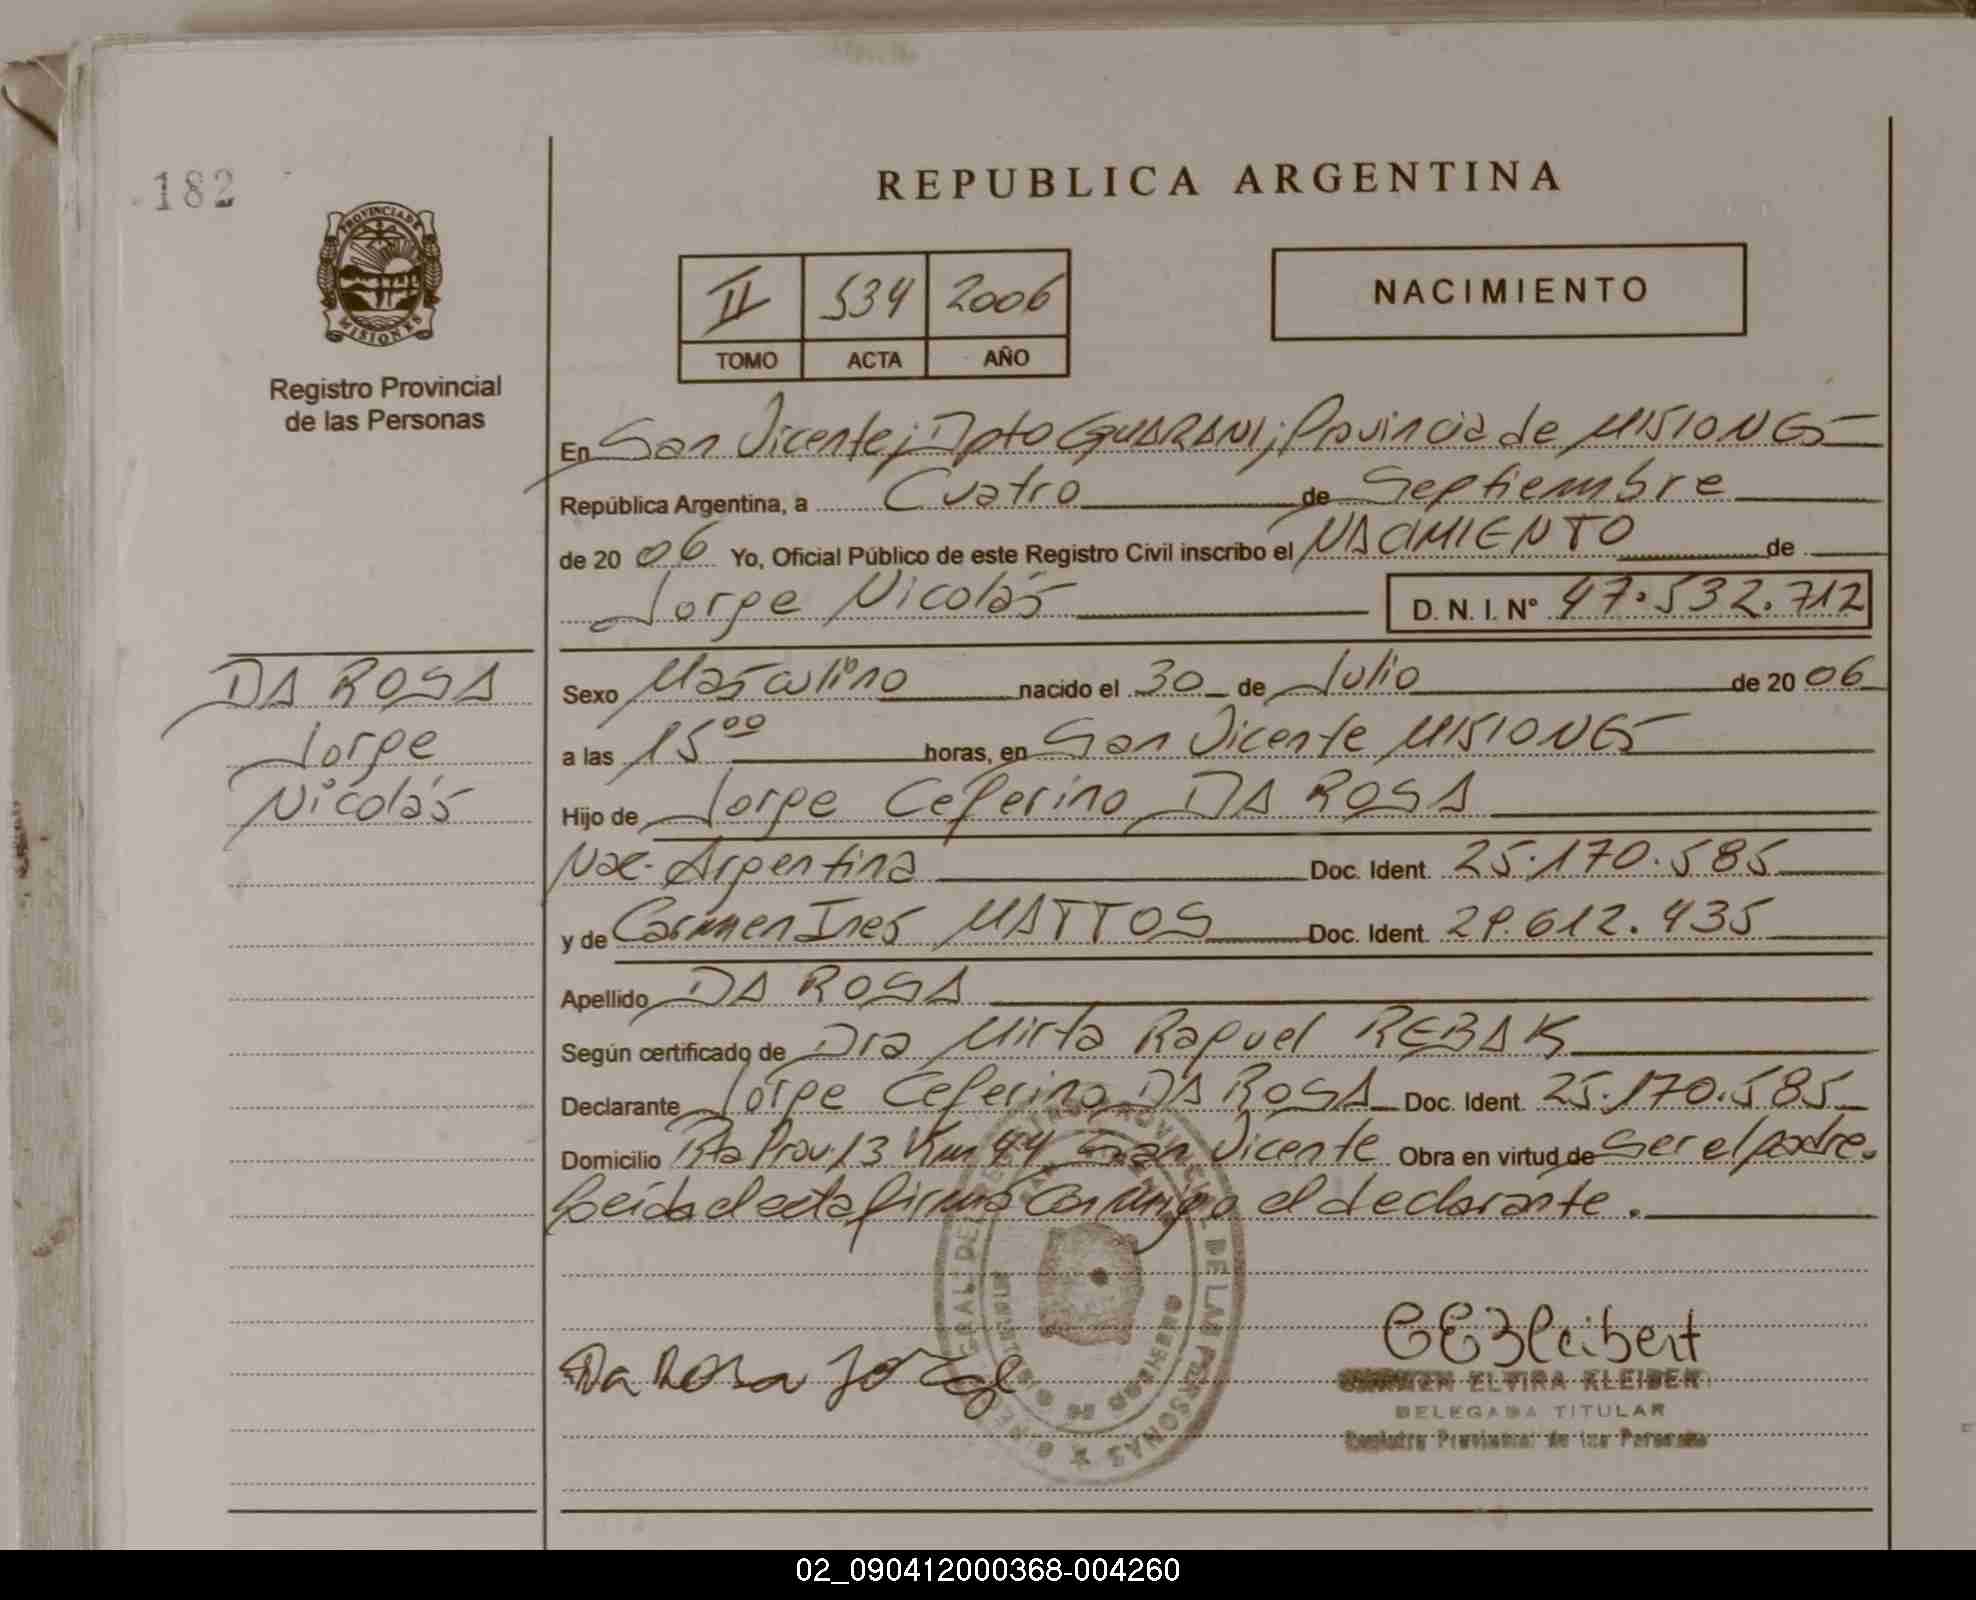 182
PROVINCIA DE
MISIONES
Registro Provincial
de las Personas
REPUBLICA ARGENTINA
II 534 2006
TOMO ACTA AÑO
NACIMIENTO
En San Vicente; Dpto GUARANI; Provincia de MISIONES
República Argentina, a Cuatro de Septiembre
de 20 06 Yo, Oficial Público de este Registro Civil inscribo el NACIMIENTO de
Jorge Nicolás D. N. I. Nº 47.532.712
DA ROSA
Jorge
Nicolás
Sexo Masculino nacido el 30 de Julio de 20 06
a las 15⁰⁰ horas, en San Vicente MISIONES
Hijo de Jorge Ceferino DA ROSA
Nac. Argentina Doc. Ident. 25.170.585
y de Carmen Ines MATTOS Doc. Ident. 29.612.435
Apellido DA ROSA
Según certificado de Dra Mirta Raquel REBAK
Declarante Jorge Ceferino DA ROSA Doc. Ident. 25.170.585
Domicilio Rta Prov. 13 Km 44 San Vicente Obra en virtud de Ser el padre.
Leída el acta firma conmigo el declarante.
Da Rosa Jorge
DE LAS PERSONAS
ELVIRA KLEIBER
DELEGADA TITULAR
Registro Provincial de las Personas
02_090412000368-004260